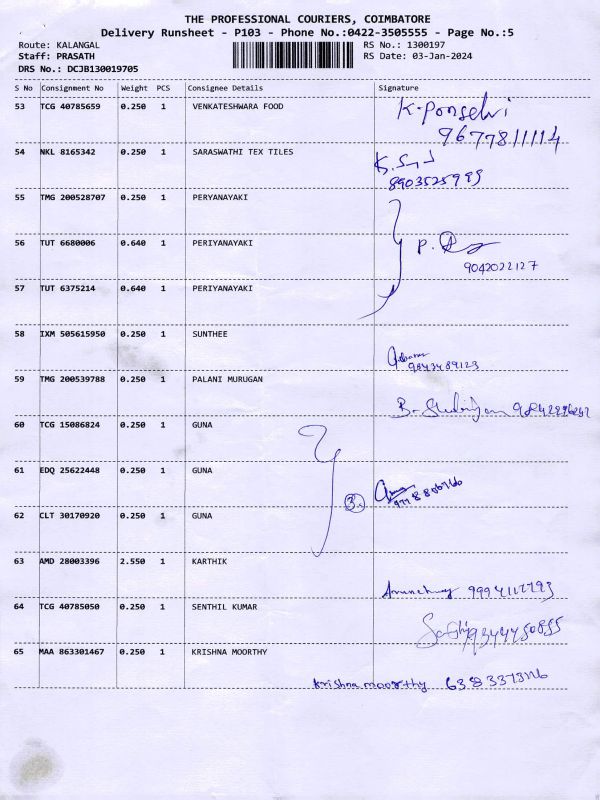 THE PROFESSIONAL COURIERS, COIMBATORE
Delivery Runsheet - P103 - Phone No.:0422-3505555 - Page No.:5
Route: KALANGAL RS No.: 1300197
Staff: PRASATH RS Date: 03-Jan-2024
DRS No.: DCJB130019705
S No Consignment No Weight PCS Consignee Details Signature
53 TCG 40785659 0.250 1 VENKATESHWARA FOOD K.Ponselvi
9677811114
54 NKL 8165342 0.250 1 SARASWATHI TEX TILES
8903525993
55 TMG 200528707 0.250 1 PERYANAYAKI
56 TUT 6680006 0.640 1 PERIYANAYAKI P.
9042022127
57 TUT 6375214 0.640 1 PERIYANAYAKI
58 IXM 505615950 0.250 1 SUNTHEE
9843489123
59 TMG 200539788 0.250 1 PALANI MURUGAN
B.
60 TCG 15086824 0.250 1 GUNA
61 EDQ 25622448 0.250 1 GUNA
3.
62 CLT 30170920 0.250 1 GUNA
63 AMD 28003396 2.550 1 KARTHIK
64 TCG 40785050 0.250 1 SENTHIL KUMAR
9344450855
65 MAA 863301467 0.250 1 KRISHNA MOORTHY
krishna moorthy